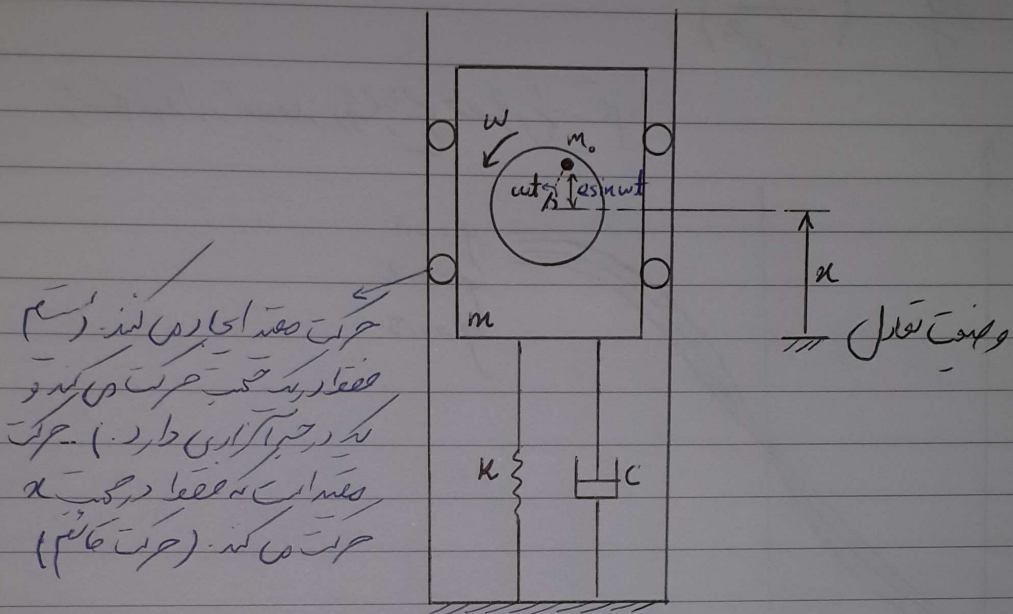 ω
m₀
ωt
esinωt
x
وضعیت تعادل
m
حرکت مقید ایجاد می کند. (سیستم
فقط در یک جهت حرکت می کند و
یک درجه آزادی دارد.) حرکت
مقید است که فقط در جهت x
حرکت می کند. (حرکت قائم)
K
C